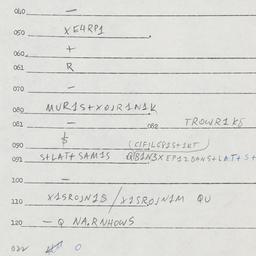 040 —
050 XE4RP1
060 +
061 R
070 —
080 MUR1S+XOJR1N1K
081 — 082 TROWR1KS
090 $ (C1FJLEP1S+1KT)
091 S+LAT+SAM1S QB1N3XEP12DAHS+LAT+S+
100 —
110 X1SROJN1S/X1SROJN1M QU
120 — Q NA.RNHOWS